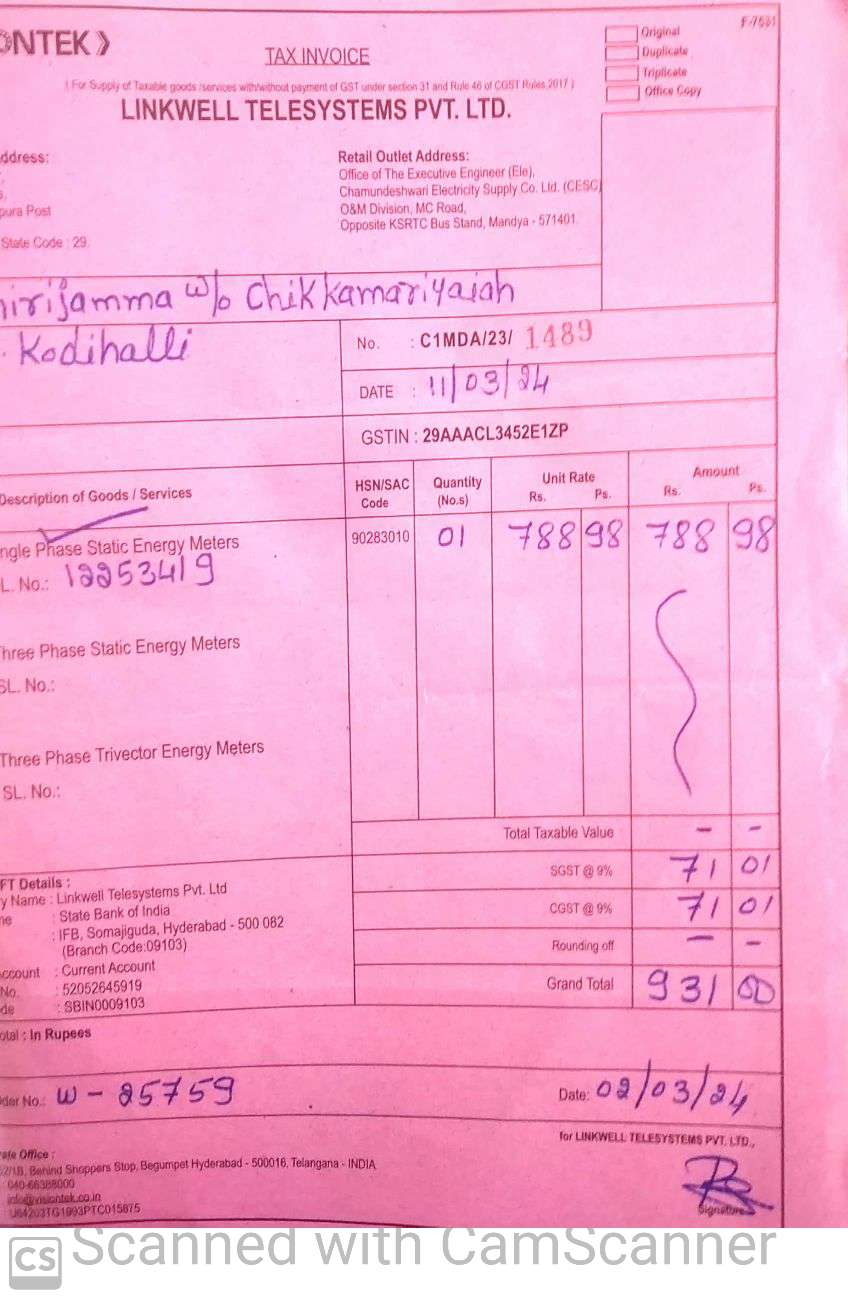 ONTEK
F-7531
TAX INVOICE
Original
Duplicate
Triplicate
Office Copy
( For Supply of Taxable goods /services with/without payment of GST under section 31 and Rule 46 of CGST Rules,2017 )
LINKWELL TELESYSTEMS PVT. LTD.
ddress:
pura Post
State Code : 29.
Retail Outlet Address:
Office of The Executive Engineer (Ele),
Chamundeshwari Electricity Supply Co. Ltd. (CESC)
O&M Division, MC Road,
Opposite KSRTC Bus Stand, Mandya - 571401.
irijamma w/o Chikkamariyaiah
Kodihalli
No. : C1MDA/23/ 1489
DATE : 11/03/24
GSTIN : 29AAACL3452E1ZP
Description of Goods / Services HSN/SAC Code Quantity (No.s) Unit Rate Rs. Ps. Amount Rs. Ps.
ngle Phase Static Energy Meters 90283010 01 788 98 788 98
L. No.: 12253419
hree Phase Static Energy Meters
SL. No.:
Three Phase Trivector Energy Meters
SL. No.:
Total Taxable Value - -
SGST @ 9% 71 01
CGST @ 9% 71 01
Rounding off - -
Grand Total 931 00
FT Details :
y Name : Linkwell Telesystems Pvt. Ltd
me : State Bank of India
: IFB, Somajiguda, Hyderabad - 500 082
(Branch Code:09103)
ccount : Current Account
No. : 52052645919
de : SBIN0009103
otal : In Rupees
der No.: W - 25759
Date: 02/03/24
for LINKWELL TELESYSTEMS PVT. LTD.,
ate Office :
2/1B, Behind Shoppers Stop, Begumpet Hyderabad - 500016, Telangana - INDIA
040-66388000
info@visiontek.co.in
U64203TG1993PTC015875
Signature
CS Scanned with CamScanner